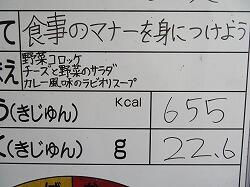 て 食事のマナーを身につけよう
え 野菜コロッケ
チーズと野菜のサラダ
カレー風味のラビオリスープ
う(きじゅん) Kcal 655
く(きじゅん) g 22.6